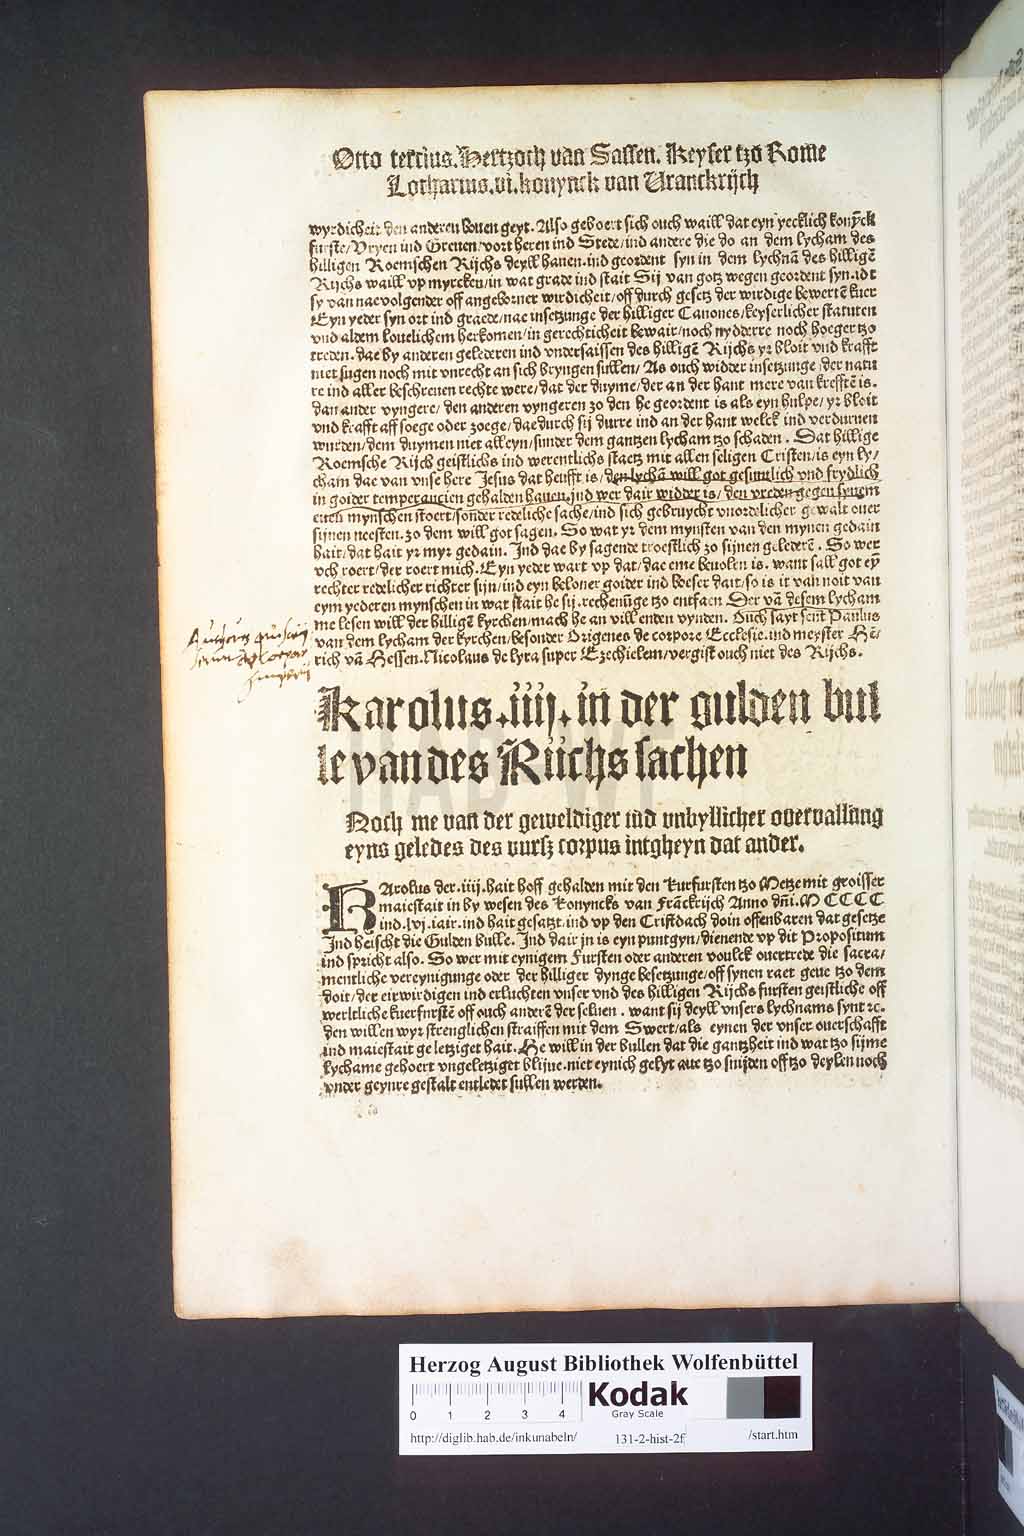 Otto tertius. Hertzoch van Sassen. Keyser tzo Rome
Lotharius .vi. konynck van Vranckrijch
wyrdicheit den anderen bouen geyt. Also gehoert sich ouch waill dat eyn yecklich konȳck
furste/Vryen ind Greuen/vort heren ind Stede/ind andere die do an dem lycham des
hilligen Roemschen Rijchs deyll hauen.ind geordent syn in dem lychnā des hilligē
Rijchs waill vp myrcken/in wat grade ind stait Sij van gotz wegen geordent syn.id t
sy van naevolgender off angeborner wirdicheit/off durch gesetz der wirdige bewertē kuer
Eyn yeder syn ort ind graede/nae insetzunge der hilliger Canones/keyserlicher statuten
vnd aldem louelichem herkomen/in gerechticheit bewair/noch nydderre noch hoeger tzo
treden.dae by anderen gelederen ind vndersaissen des hilligē Rijchs yr bloit vnd krafft
niet sugen noch mit vnrecht an sich bryngen sullen/As ouch widder insetzunge der natu
re ind aller beschreuen rechte were/dat der duyme/der an der hant mere van krefftē is.
dan ander vyngere/den anderen vyngeren zo den he geordent is als eyn hulpe/yr bloit
vnd krafft aff soege oder zoege/daedurch sij durre ind an der hant welck ind verdurnen
wurden/dem duymen niet alleyn/sunder dem gantzen lycham tzo schaden. Dat hillige
Roemsche Rijch geistlichs ind werentlichs staetz mit allen seligen Cristen/is eyn ly/
cham dae van vnse here Jesus dat heufft is/den lychā will got gesuntlich vnd frydlich
in goider temperancien gehalden hauen.ind wer dair widder is/den vreden gegen synem
euen mynschen stoert/sonder redeliche sache/ind sich gebruycht vnordelicher gewalt ouer
sijnen neesten.zo dem will got sagen. So wat yr dem mynsten van den mynen gedain
hait/dat hait yr myr gedain. Ind dae by sagende troestlich zo sijnen gelederē. So wer
vch roert/der roert mich. Eyn yeder wart vp dat/dae eme beuolen is. want sall got eȳ
rechter redelicher richter sijn/ind eyn beloner goider ind boeser dait/so is it van noit van
eym yederen mynschen in wat stait he sij.rechenūge tzo entfaen Der vā desem lycham
me lesen will der hilligē kyrchen/mach he an vill enden vynden. Ouch sayt sent Paulus
van dem lycham der kyrchen/besonder Origenes de corpore Ecclesie.ind meyster Hē/
rich vā Hessen. Nicolaus de lyra super Ezechielem/vergist ouch niet des Rijchs.
Karolus .iiij. in der gulden bul
le van des Rijchs sachen
Noch me van der geweldiger ind vnbyllicher overvallung
eyns geledes des vurß corpus intgheyn dat ander.
KArolus der .iiij. hait hoff gehalden mit den kurfursten tzo Metze mit groisser
maiestait in by wesen des Konyncks van Frāckrijch Anno dn̄i. M CCCC
ind .lvj. iair. ind hait gesatzt.ind vp den Cristdach doin offenbaren dat gesetze
Ind heischt die Gulden bulle. Ind dair jn is eyn puntgyn/dienende vp dit Propositum
ind spricht also. So wer mit eynigem Fursten oder anderen voulck ouertrede die sacra/
mentliche vereynigunge oder der billiger dynge besetzunge/off synen raet geue tzo dem
doit/der eirwirdigen ind erluchten vnser vnd des hilligen Rijchs fursten geistliche off
werltliche kuerfurstē off ouch anderē der seluen. want sij deyll vnsers lychnams synt ꝛc.
den willen wyr strenglichen straiffen mit dem Swert/als eynen der vnser ouerschafft
ind maiestait geletziget hait. He will in der bullen dat die gantzheit ind wat tzo sijme
lychame gehoert vngeletziget blijue.niet eynich gelyt aue tzo snijden off tzo deylen noch
vnder geynre gestalt entledet sullen werden.
Herzog August Bibliothek Wolfenbüttel
0 1 2 3 4
Kodak
Gray Scale
http://diglib.hab.de/inkunabeln/ 131-2-hist-2f /start.htm
HAB-WF